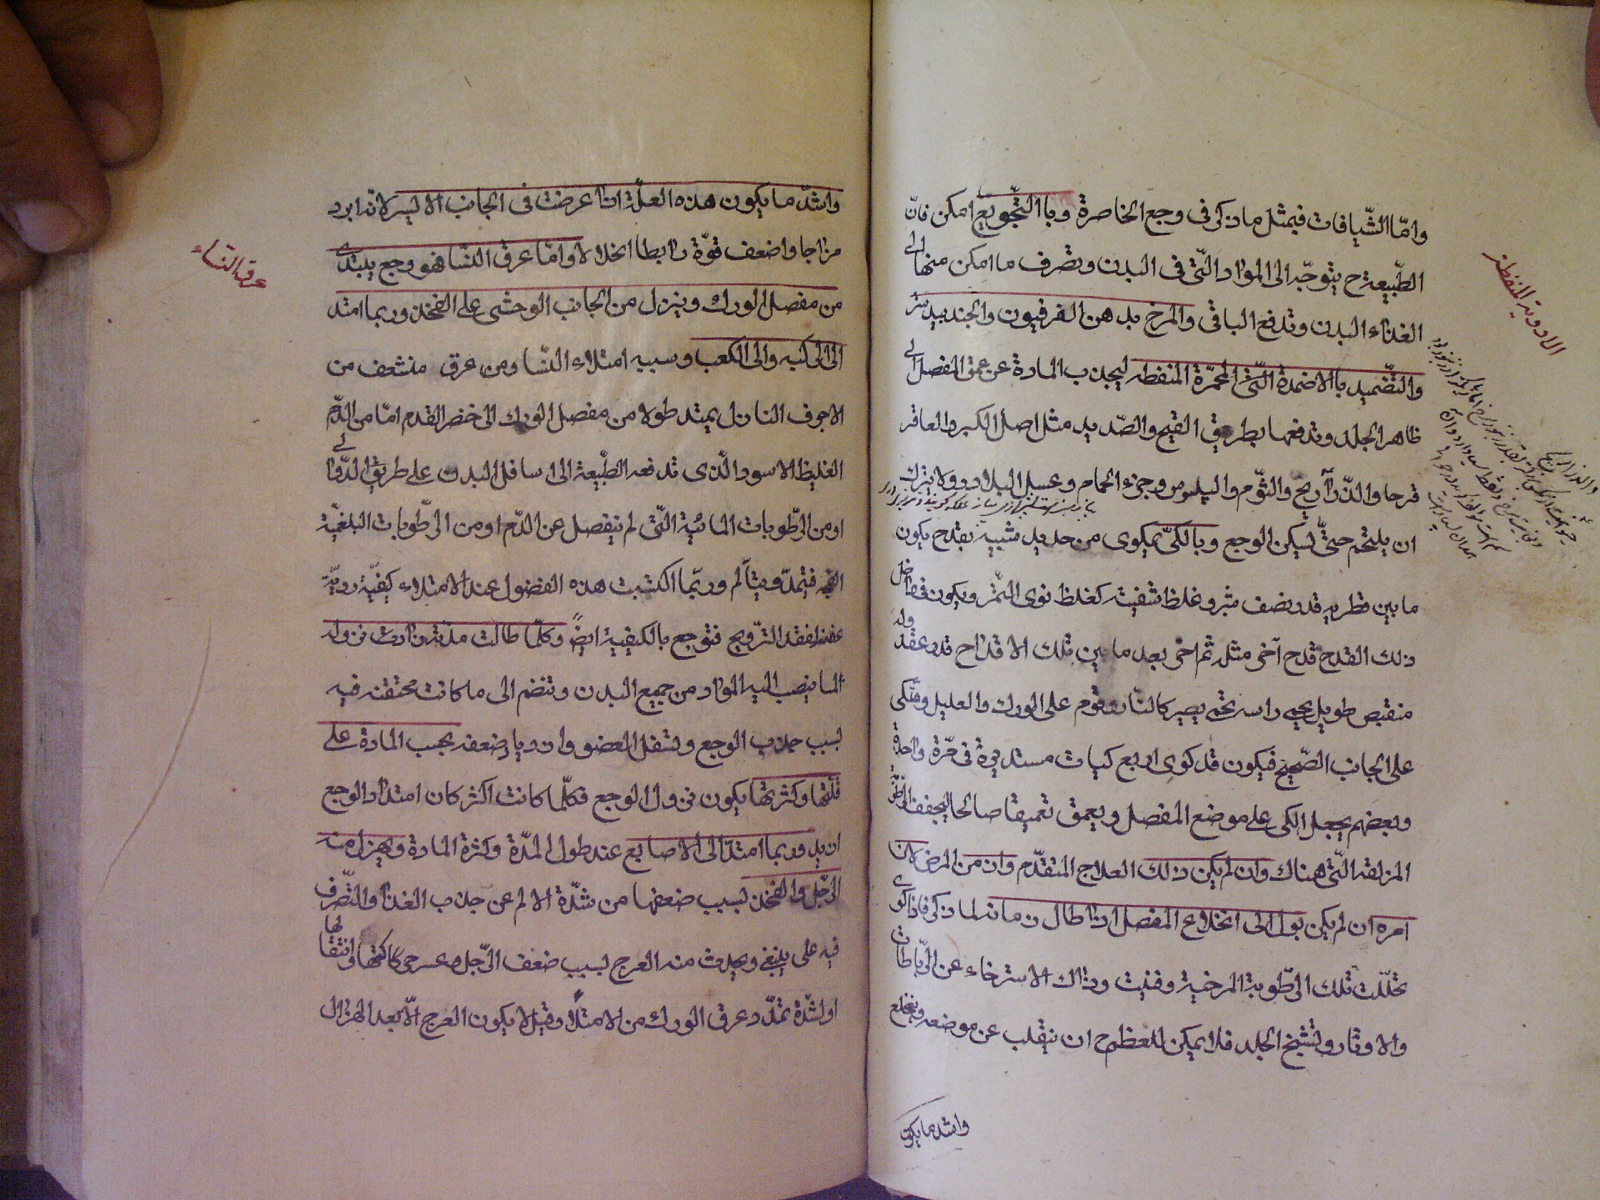 وامّا الشّيافات فبمثل ما ذكر فى وجع الخاصرة وبا التّجويع امكن فانّ
الطّبيعة ح يتوجّه الى الموادّ التّى فى البدن وتصرف ما امكن منها الى
الغذاء البدن وتدفع الباقى والمرخ بدهن الفرفيون والجندبيدستر
والتّضميد باالاضمدة التّى المحمّرة المنفطه ليجذب المادة عن عمق المفصل الى
ظاهر الجلد وتدفعها بطريق القيح والصّديد مثل اصل الكبر والعاقر
قرحا والذّراريح والثوم والبلبوس وجزء الحمام وعسل البلادر ولا يترك
ان يلتحم حتّى يسكن الوجع وبالكىّ بمكوى من حديد شبيه بقدح يكون
ما بين قطريه قدر نصف شبر وغلظ شفيته كغلظ نوى التّمر ويكون فى داخل
ذلك القدح قدح آخر مثله ثم اخر بعد ما بين تلك الاقداح قدر عقد وله
مقبض طويل يحمى راسه حتى يصير كالنّار وقوم على الورك والعليل متّكى
على الجانب الصّحيح فيكون قد كوى اربع كيات مستديرة فى مرّة واحدة
وبعضهم يجعل الكى على موضع المفصل ويعمق تعميقا صالحا ليجفف الرطوبة
المزلقة التّى هناك وان لم يكن ذلك العلاج المتقدّم وان من المرض لان
امره ان لم يكن يول الى انخلاع المفصل اذا طال زمانه لما ذكر فاذا كوى
تحلّلت تلك الرّطوبة المرخية وفنيت وذاك الاسترخاء عن الرّباطات
والاوتار وتشنج الجلد فلا يمكن للعظم ح ان ينقلب عن موضعه وينخلع
واشد ما يكون
الادوية المنفطه
واشدّ ما يكون هذه العلّة اذا عرضت فى الجانب الايسر لانه ابرد
مزاجا واضعف قوّة رابطا انخلالا وامّا عرق النّسا فهو وجع يبتدى
من مفصل الورك وينزل من الجانب الوحشى على الفخذ وربما امتد
الى الركبه والى الكعب وسببه امتلاء النّسا ومن عرق منشعب من
الاجوف النازل يمتد طولا من مفصل الورك الى خنصر القدم امّا من الدّم
الغليظ الاسود الّذى تدفعه الطّبيعة الى اسافل البدن على طريق الدّوالى
او من الرّطوبات المائية التّى لم ينفصل عن الدّم او من الرّطوبات البلغميّة
الفجه فتمدّد ويتالم وربّما اكتسبت هذه الفضول عند الامتلاء كيفيّة رديّة
عفنه لفقد الترويح فتوجع بالكيفية ايضً وكلّما طالت مدّته زادت نزوله
لما ينصب اليه الموادّ من جميع البدن وتنضم الى ما كانت محتقنه فيه
بسبب جذب الوجع وتسفل العضو وازدياد ضعفه بحسب المادة على
قلتها وكثرتها يكون نزول الوجع فكلّما كانت اكثر كان امتداد الوجع
ازيد وربما امتدّ الى الاصابع عند طول المدّة وكثرة المادة ويهزل منه
الرّجل والفخذ بسبب ضعفها من شدّة الالم عن جذب الغذاء والتّصرّف
فيه على ينبغى ويحدث منه العرج بسبب ضعف الرّجل
او لشدّة تمدّد عرق الورك من الامتلاء وقيل لا يكون العرج الّا بعد الهزال
عرق النساء